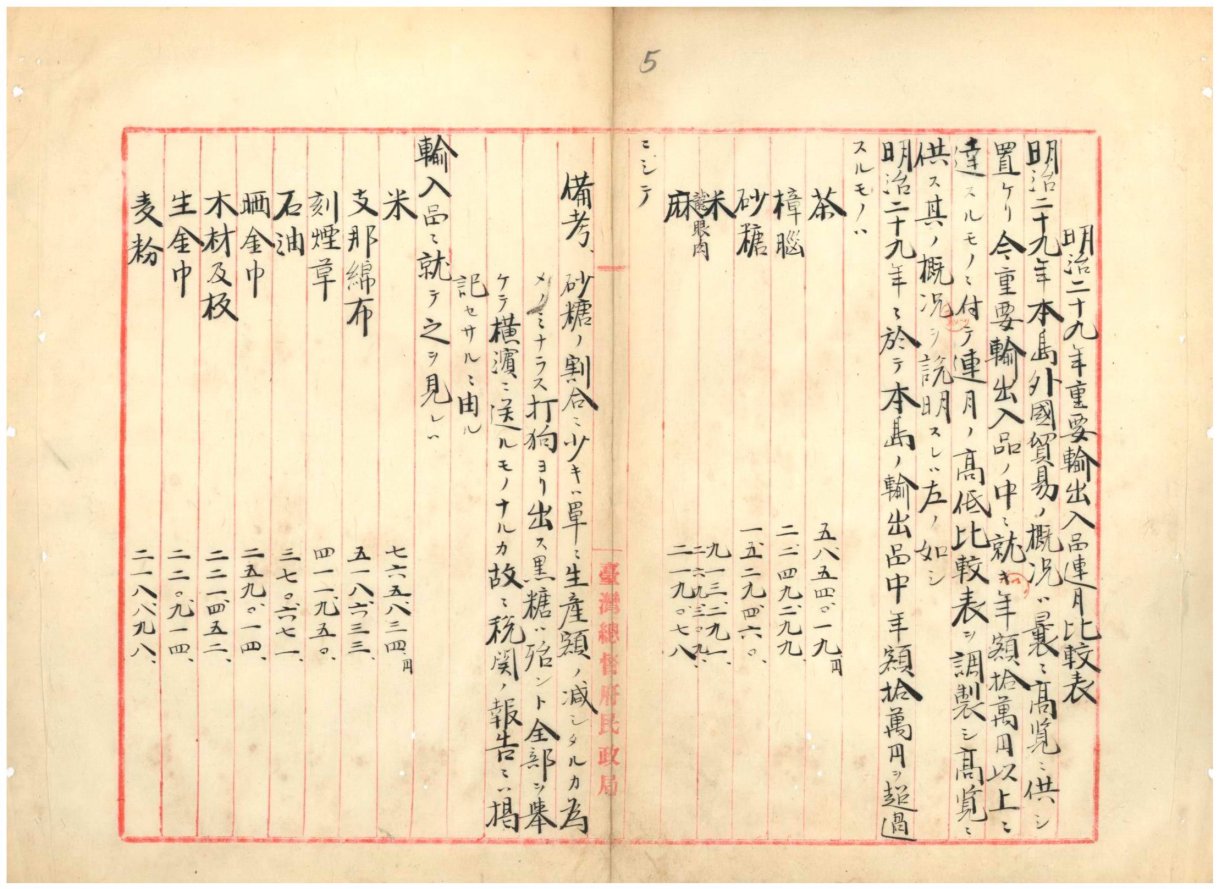 5
明治二十九年重要輸出入品連月比較表
明治二十九年本島外國貿易ノ概況ハ曩ニ高覧ニ供シ
置ケリ今重要輸出入品ノ中ニ就キ年額拾萬円以上ニ
達スルモノニ付テ連月ノ高低比較表ヲ調製シ高覧ニ
供ス其ノ概況ヲ説明スレハ左ノ如シ
明治二十九年ニ於テ本島ノ輸出品中年額拾萬円ヲ超過
スルモノハ
茶 五八五四〇一九円
樟腦 二二四九二九九、
砂糖 一五二九四六〇、
米 九一三二九一、
龍眼肉 二六九三〇九、
麻 二一九〇七八
ニシテ
臺灣總督府民政局
備考、砂糖ノ割合ニ少キハ單ニ生産額ノ減シタルカ為
メノミナラス打狗ヨリ出ス黒糖ハ殆ント全部ヲ擧
ケテ横濱ニ送ルモノナルカ故ニ税関ノ報告ニハ掲
記セサルニ由ル
輸入品ニ就テ之ヲ見レハ
米 七六五八三四円
支那綿布 五一八六三三、
刻煙草 四一一九五〇、
石油 三七〇六七一、
晒金巾 二五九〇一四、
木材及板 二二一四五二、
生金巾 二二〇九一四、
麦粉 二一八八九八、